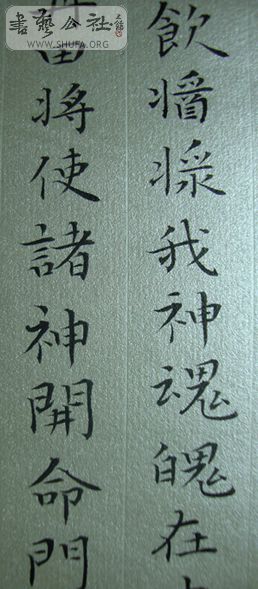 飲我神魂魄在
將使諸神開命門
書藝公社
WWW.SHUFA.ORG